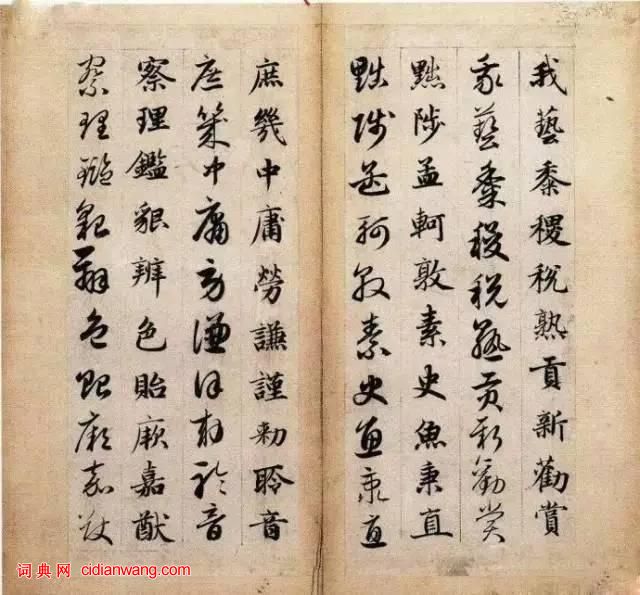 我藝黍稷稅熟貢新勸賞
我藝黍稷稅熟貢新勸賞
黜陟孟軻敦素史魚秉直
黜陟孟軻敦素史魚秉直
庶幾中庸勞謙謹勑聆音
庶幾中庸勞謙謹勑聆音
察理鑑貌辨色貽厥嘉猷
察理鑑貌辨色貽厥嘉猷
词典网 cidianwang.com